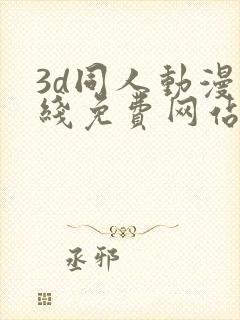 3d同人動漫
綫免費网佔
丞邪